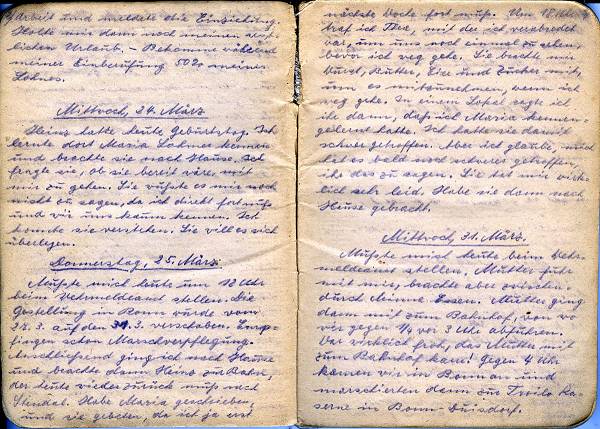 Arbeit und meldete die Einziehung.
Holte mir dann noch meinen
lichen Urlaub. - Bekomme während
meiner Einberufung 50% meines
Lohnes.
Mittwoch, 24. März
Heinz hatte heute Geburtstag. Ich
lernte dort Maria kennen
und brachte sie nach Hause. Ich
fragte sie, ob sie bereit wäre, mit
mir zu gehen. Sie wüßte es mir noch
nicht zu sagen, da ich direkt fort muß
und wir uns kaum kennen. Ich
konnte sie verstehen. Sie will es sich
überlegen.
Donnerstag, 25. März
Mußte mich heute um 12 Uhr
beim Wehrmeldeamt stellen. Die
Gestellung in Bonn wurde vom
27.3. auf den 31.3. verschoben. Emp-
fingen schon Marschverpflegung.
Anschließend ging ich nach Hause
und brachte dann Heinz zur Bahn,
der heute wieder zurück muß nach
Stendal. Habe Maria geschrieben
und sie gebeten, da ich ja erst
nächste Woche fort muß. Um 18 Uhr
traf ich Thea, mit der ich verabredet
war, um uns noch einmal zu sehen,
bevor ich weg gehe. Sie brachte mir
Wurst, Butter, Eier und Zucker mit,
um es mitzunehmen, wenn ich
weg gehe. In einem Lokal sagte ich
ihr dann, daß ich Maria kennen-
gelernt hatte. Ich hatte sie damit
schwer getroffen. Aber ich glaube, mich
hat es bald noch schwerer getroffen,
ihr das zu sagen. Sie tat mir wirk-
lich sehr leid. Habe sie dann nach
Hause gebracht.
Mittwoch, 31. März.
Mußte mich heute beim Wehr-
meldeamt stellen. Mutter fuhr
mit mir, brachte aber zwischen-
durch Minne Essen. Mutter ging
dann mit zum Bahnhof, von wo
wir gegen 1/4 vor 3 Uhr abfuhren.
War wirklich froh, daß Mutter mit
zum Bahnhof kam! Gegen 4 Uhr
kamen wir in Bonn an und
marschierten dann zur Troilo Ka-
serne in Bonn-Duisdorf.